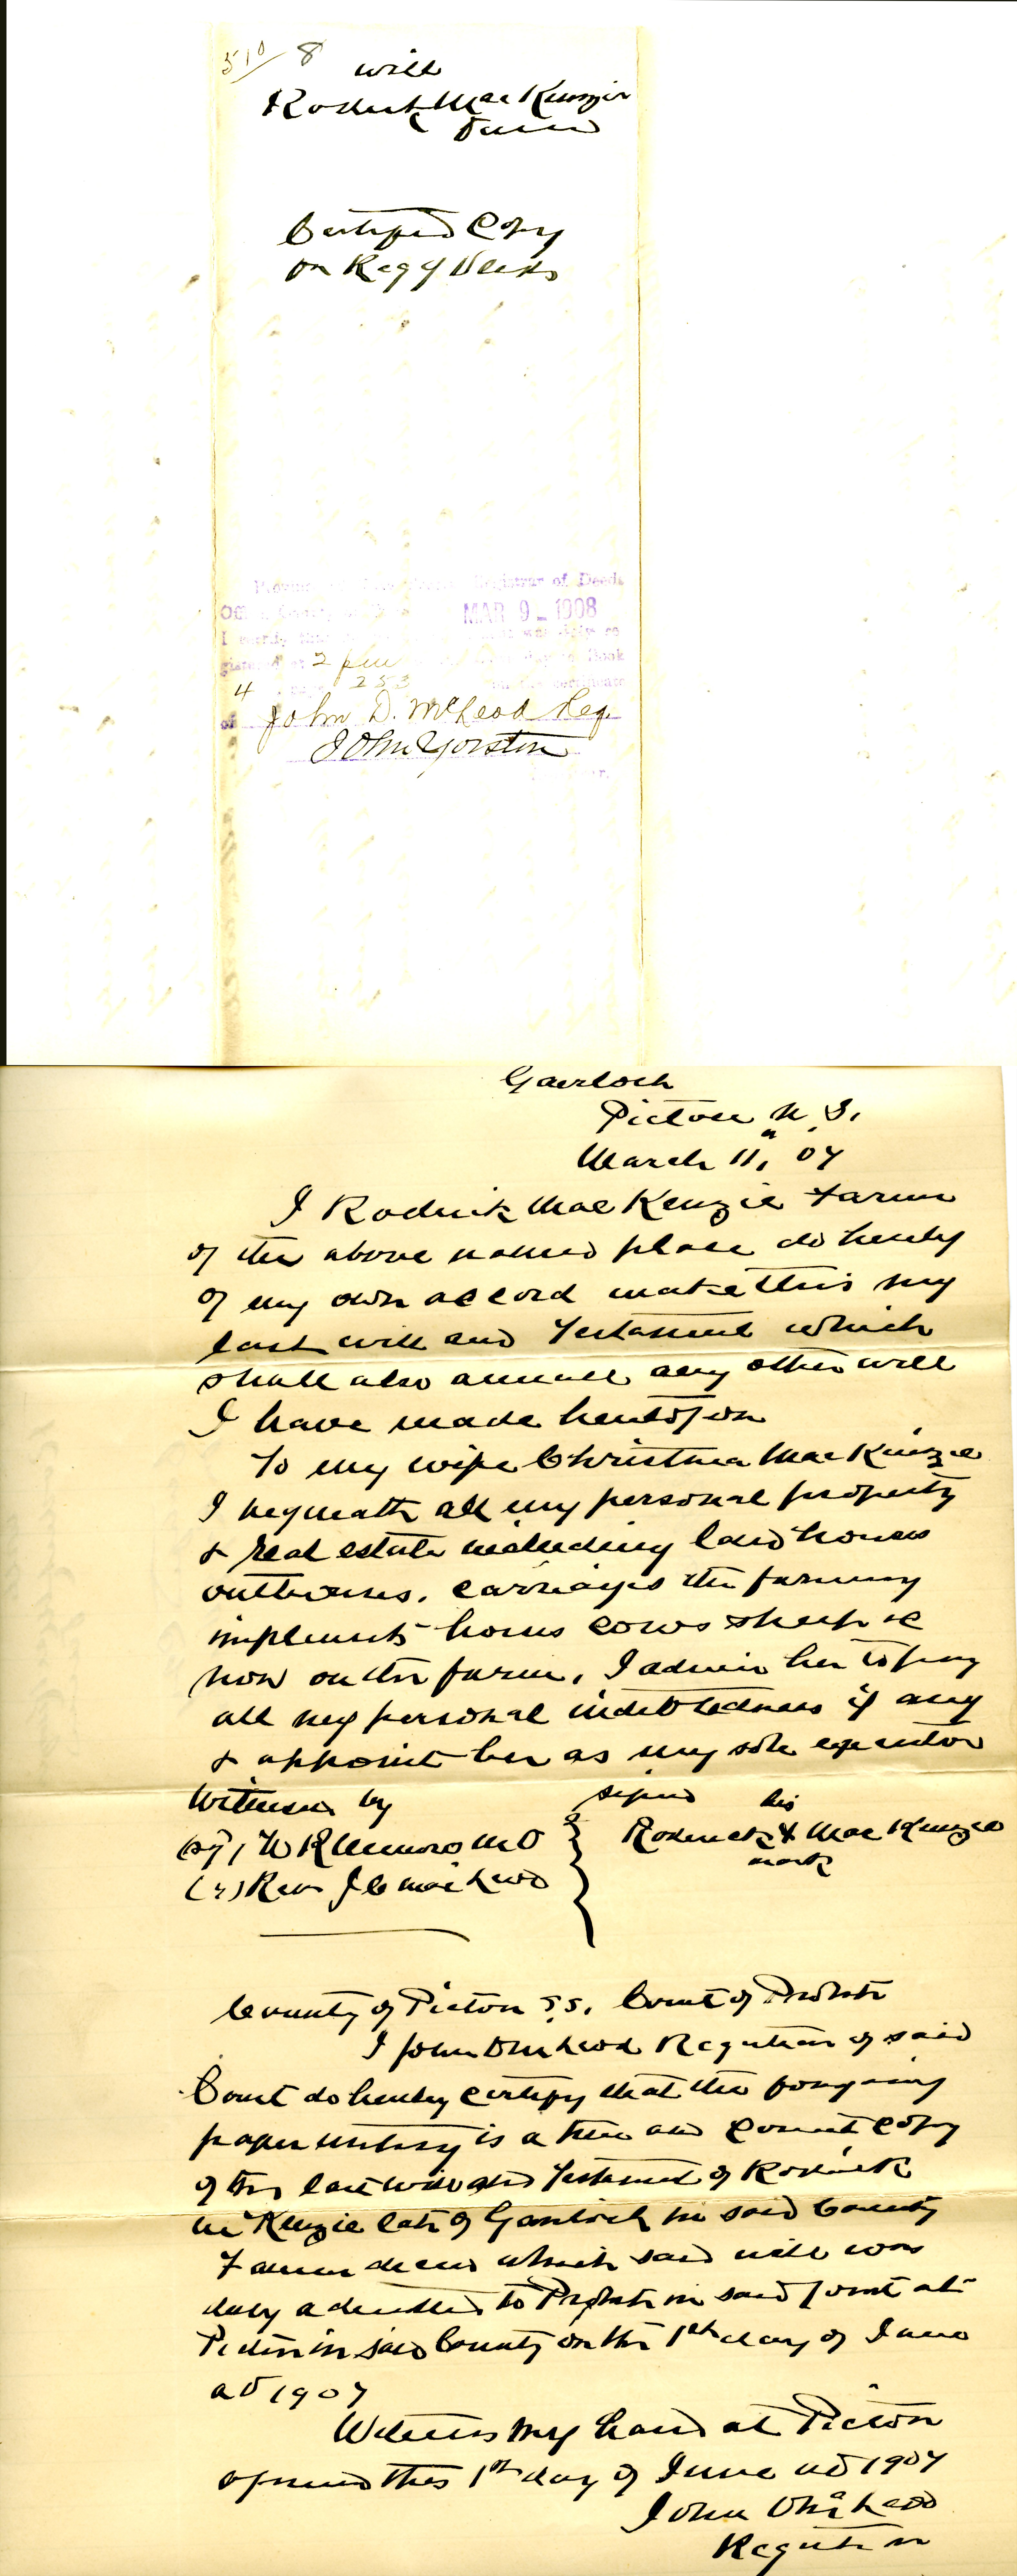 510/ 8
Will
Rodrick MacKenzie
Certified Copy
for Reg of Deeds
Registrar of Deeds
Office MAR 9 - 1908
I certify that was duly re
gistered at 2 pm Book
4 page 253 on the certificate
of John D. McLeod Reg.
John Yorston
Gairloch
Pictou N. S.
March 11, 07
I Rodrick MacKenzie Farmer
of the above named place do hereby
of my own accord make this my
last will and Testament which
shall also annull any other will
I have made heretofore
To my wife Christina MacKenzie
I beqeath all my personal property
& real estate including land houses
outhouses, carriages the farming
implements horses cows sheep &c
now on the farm, I admin her to pay
all my personal indebtedness if any
& appoint her as my sole executor
Witnessed by signed his
(sg) W R Munro M D Roderick X MacKenzie
mark
(") Rev J C MacLeod
County of Pictou S.S. Court of Probate
I John D McLeod Registrar of said
Court do hereby certify that the foregoing
paper writing is a true and correct copy
of the last will and Testament of Rodrick
McKenzie late of Gairloch in said County
Farmer decd which said will was
duly admitted to Probate in said Court at
Pictou in said County on the 1st day of June
AD 1907
Witness my hand at Pictou
aforesaid this 1st day of June AD 1907
John D McLeod
Registrar